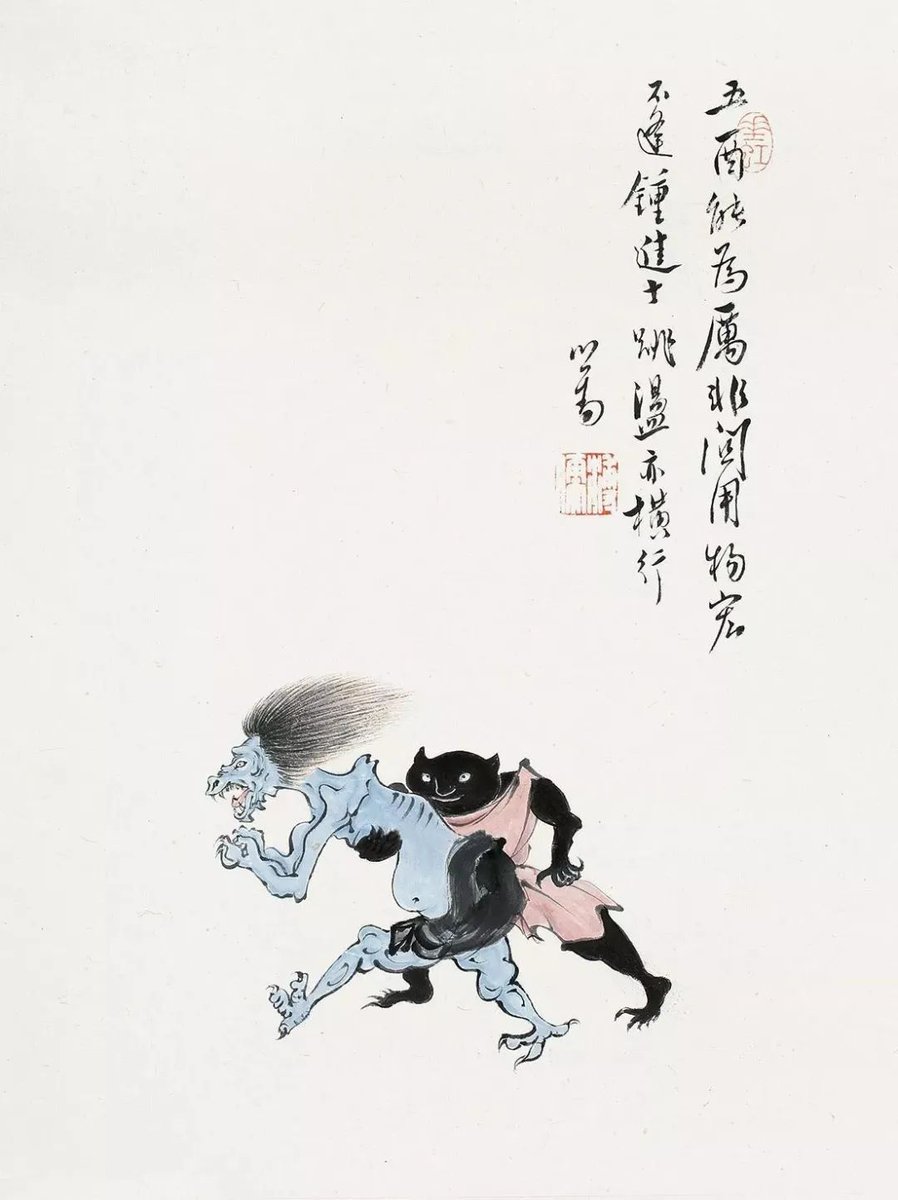 五酉能為厲非關用物宏
不逢鍾進士跳盪亦橫行
心畬